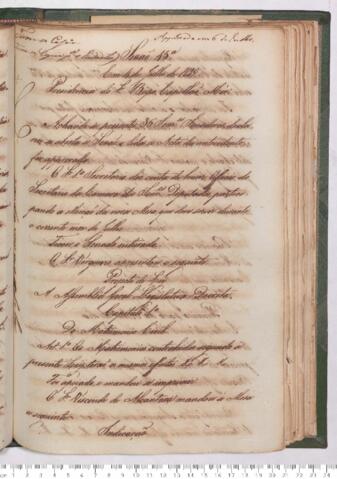 Approvada em 6 de Julho
Sessão 45ª
em 4 de Julho de 1828
Presidencia do Sr. Bispo Capellão Mór
Achando-se presentes 35 Srs. Senadores decla-
rou-se aberta a Sessão e lida a Acta da antecedente
foi approvada
O Sr. 1º Secretario deu conta de hum Officio do
Secretario da Camara dos Srs. Deputados partici-
pando a eleição da nova Mesa que deve servir durante
o corrente mez de Julho
Ficou o Senado inteirado
O Sr. Vergueiro apresentou o seguinte
Projecto de Lei
A Assembléa Geral Legislativa Decreta
Capitulo 1º
Do Matrimonio Civil
Art. 1º O Matrimonio contrahido segundo a
presente Lei
Foi apoiado e mandou-se imprimir
O Sr. Visconde de Alcantara mandou á Mesa
o seguinte
Indicação